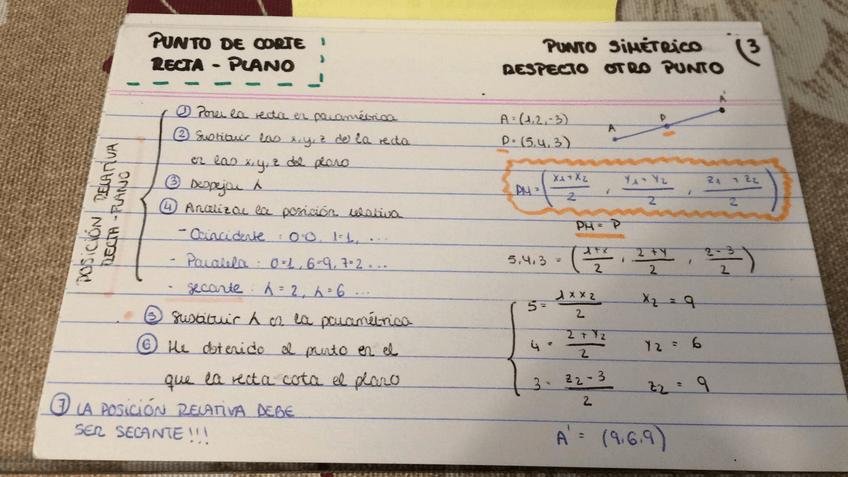 PUNTO DE CORTE
RECTA - PLANO
POSICIÓN RELATIVA
RECTA - PLANO
① Poner la recta en paramétrica
② Sustituir las x, y, z de la recta
en las x, y, z del plano
③ Despejar λ
④ Analizar la posición relativa
- Coincidente : 0=0, 1=1, ...
- Paralela : 0=1, 6=9, 7=2 ...
- secante : λ = 2, λ = 6 ...
⑤ Sustituir λ en la paramétrica
⑥ He obtenido el punto en el
que la recta cota el plano
⑦ LA POSICIÓN RELATIVA DEBE
SER SECANTE!!!
PUNTO SIMÉTRICO (3
RESPECTO OTRO PUNTO
A = (1,2,-3)
P = (5,4,3)
A P A'
PM = ( x1+x2 / 2 , y1+y2 / 2 , z1+z2 / 2 )
PM = P
5,4,3 = ( 1+x / 2 , 2+y / 2 , z-3 / 2 )
5 = 1xx2 / 2 x2 = 9
4 = 2+y2 / 2 y2 = 6
3 = z2-3 / 2 z2 = 9
A' = (9,6,9)